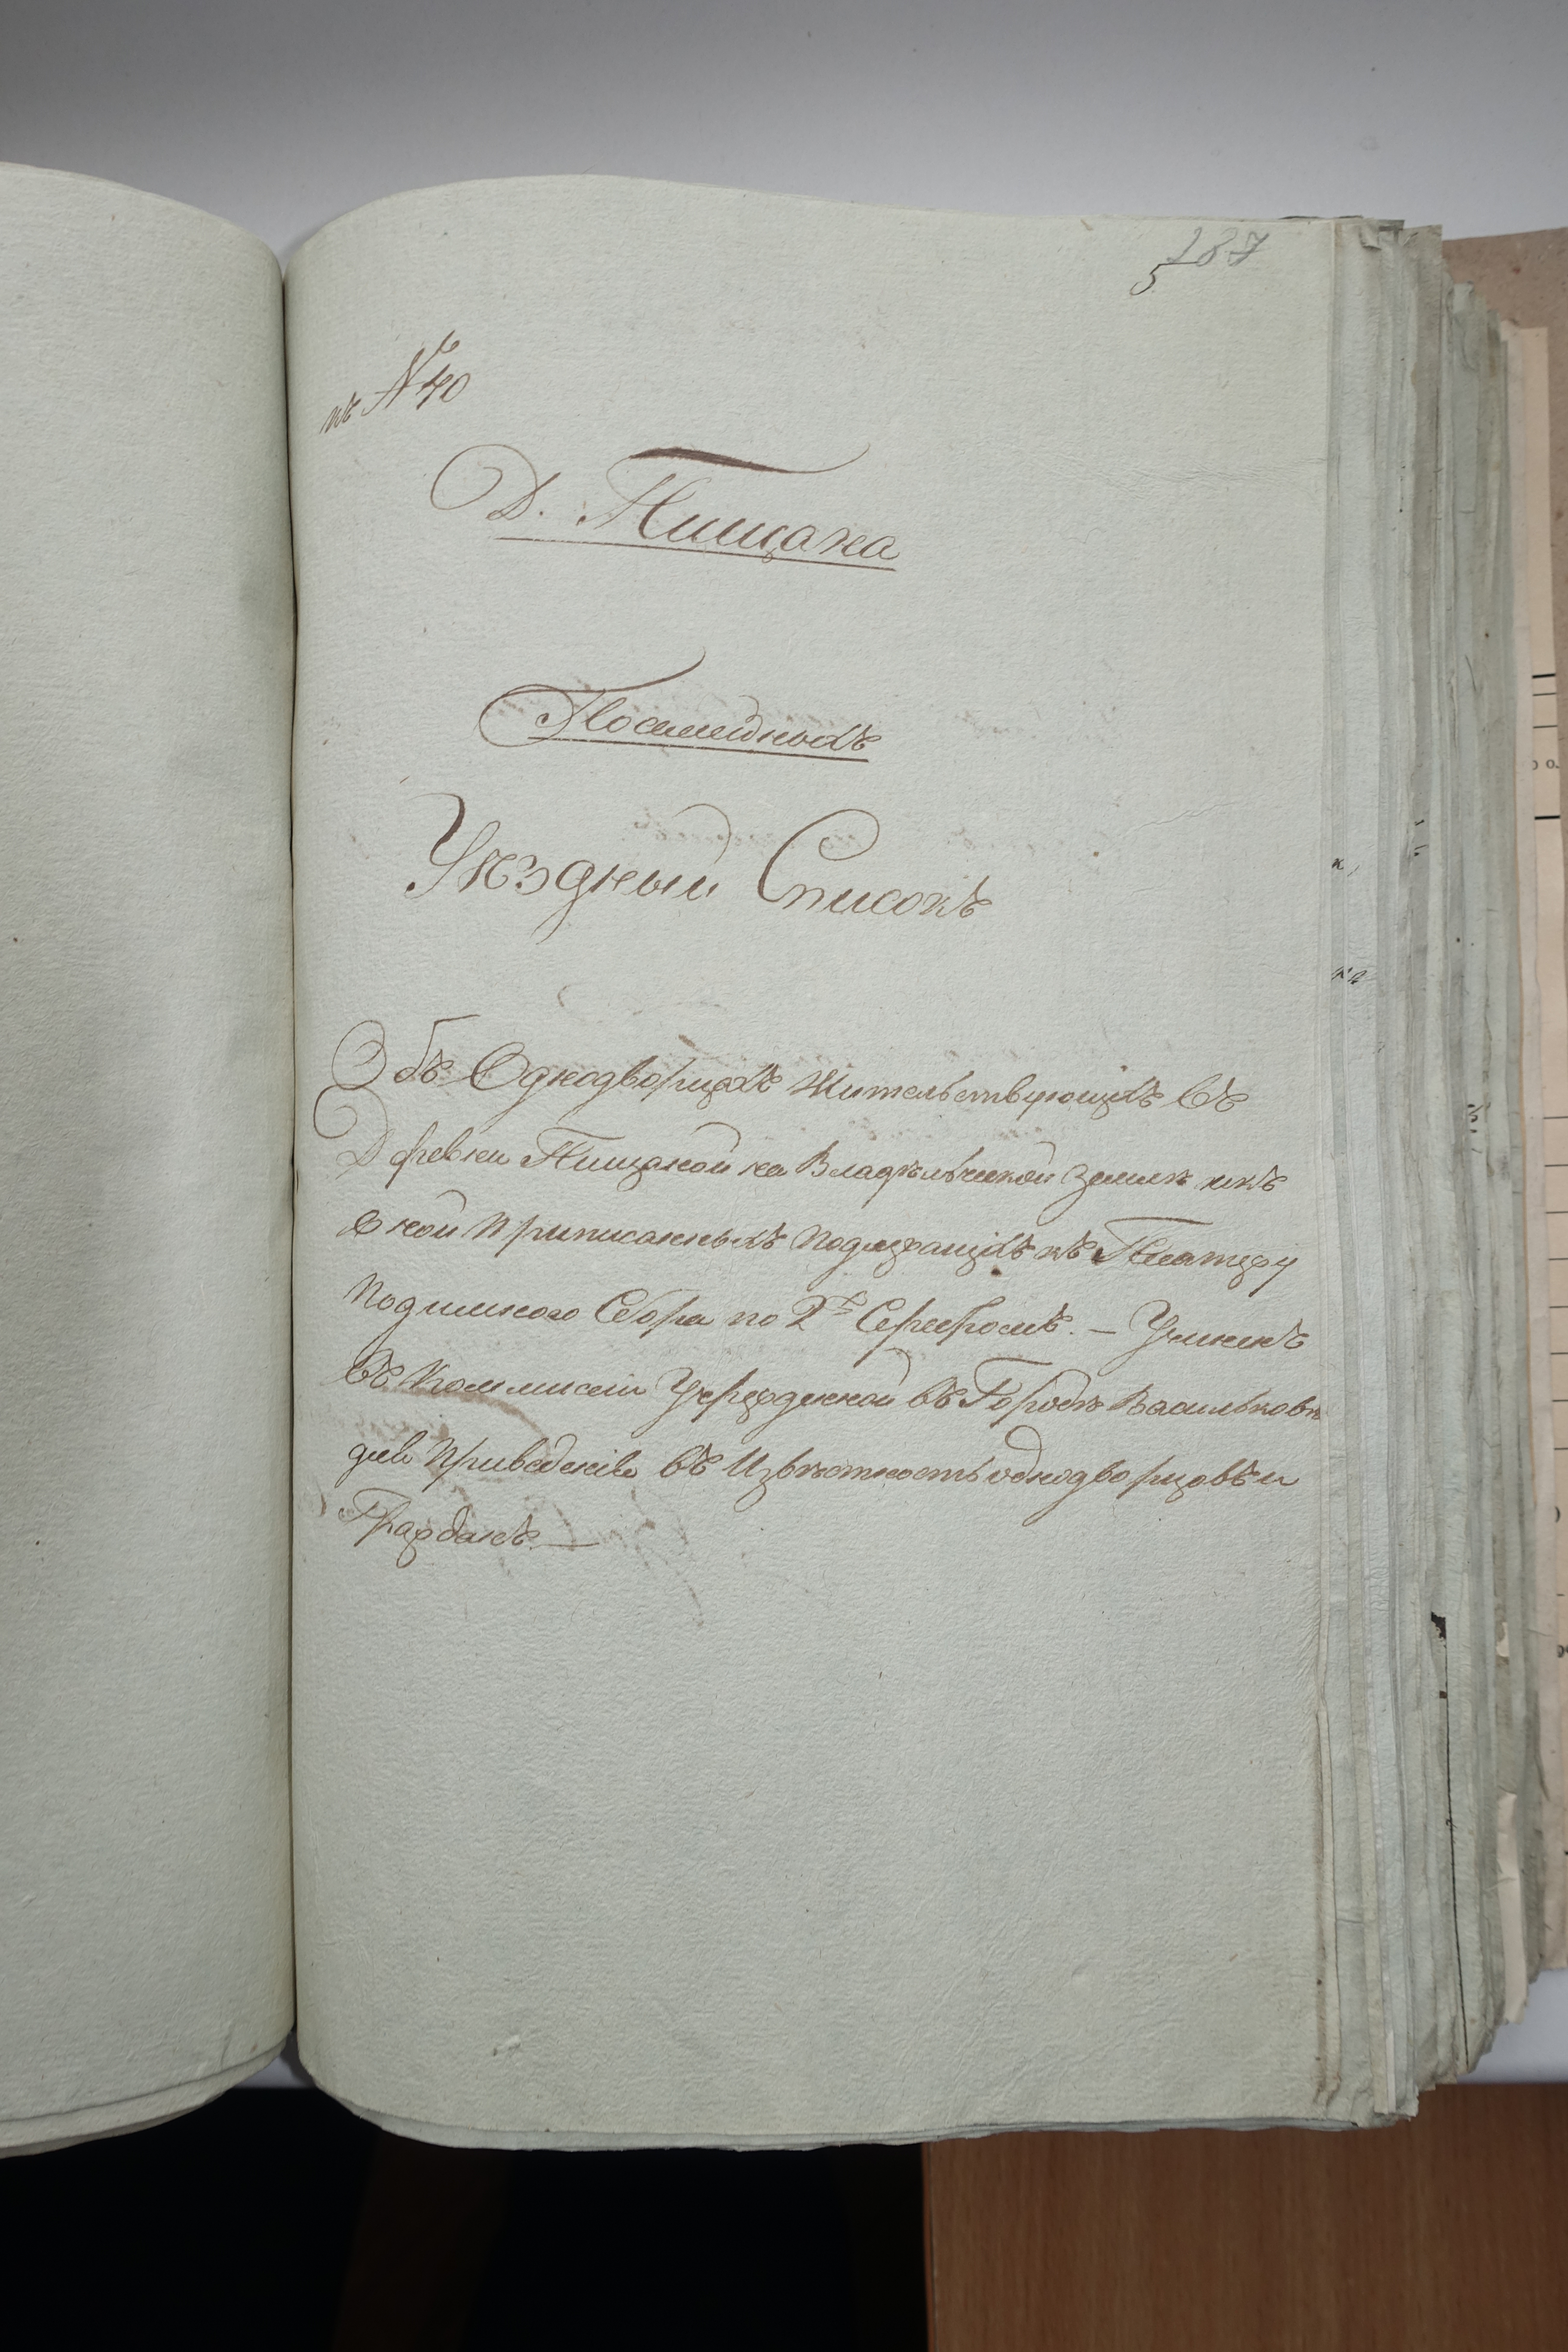 187
5
къ №40
Д. Пищана
Посемейный
Уѣздный Списокъ
Объ Однодворцахъ Жительствующихъ въ
Деревни Пищаной на Владѣльческой Землѣ икъ
оной Приписанныхъ Подлежащихъ къ Платежу
Подымного Сбора по 2 Серебромъ. — Учиненъ
въ Коммисіи Учрежденной въ Городѣ Васильковѣ
для Приведенія въ Извѣстность однодворцовъ и
Граждан. —